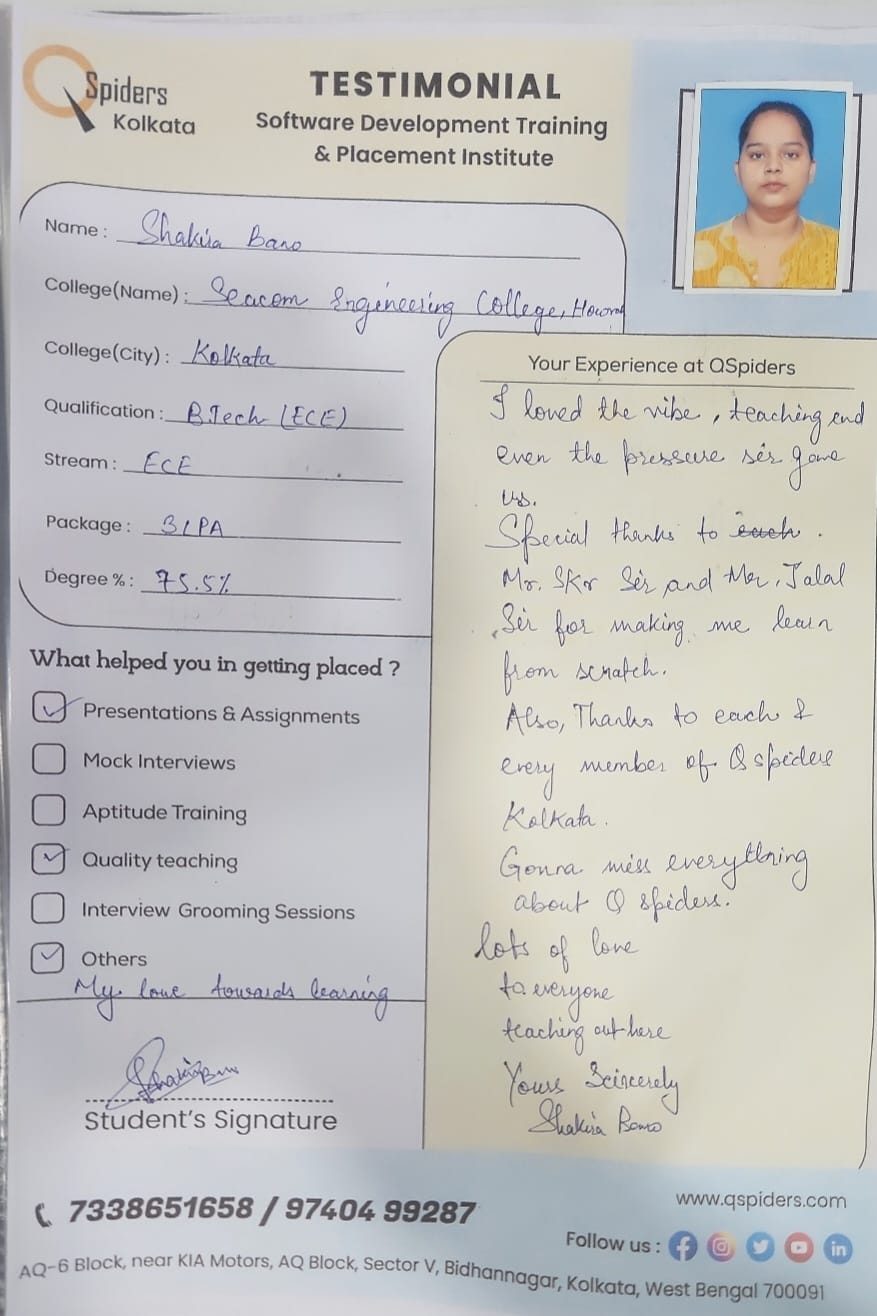 QSpiders
Kolkata
TESTIMONIAL
Software Development Training
& Placement Institute
Name : Shakira Bano
College(Name) : Seacom Engineering College, Howrah
College(City) : Kolkata
Qualification : B.Tech (ECE)
Stream : ECE
Package : 3 LPA
Degree % : 75.5%
What helped you in getting placed ?
Presentations & Assignments
Mock Interviews
Aptitude Training
Quality teaching
Interview Grooming Sessions
Others
My love towards learning
Shakira Bano
Student's Signature
Your Experience at QSpiders
I loved the vibe, teaching and
even the pressure sir gave
us.
Special thanks to each.
Mr. SKr Sir and Mr. Jalal
Sir for making me learn
from scratch.
Also, Thanks to each &
every member of Q spiders
Kolkata.
Gonna miss everything
about Q spiders.
lots of love
to everyone
teaching out here
Yours Scincerely
Shakira Bano
7338651658 / 97404 99287
www.qspiders.com
Follow us :
AQ-6 Block, near KIA Motors, AQ Block, Sector V, Bidhannagar, Kolkata, West Bengal 700091